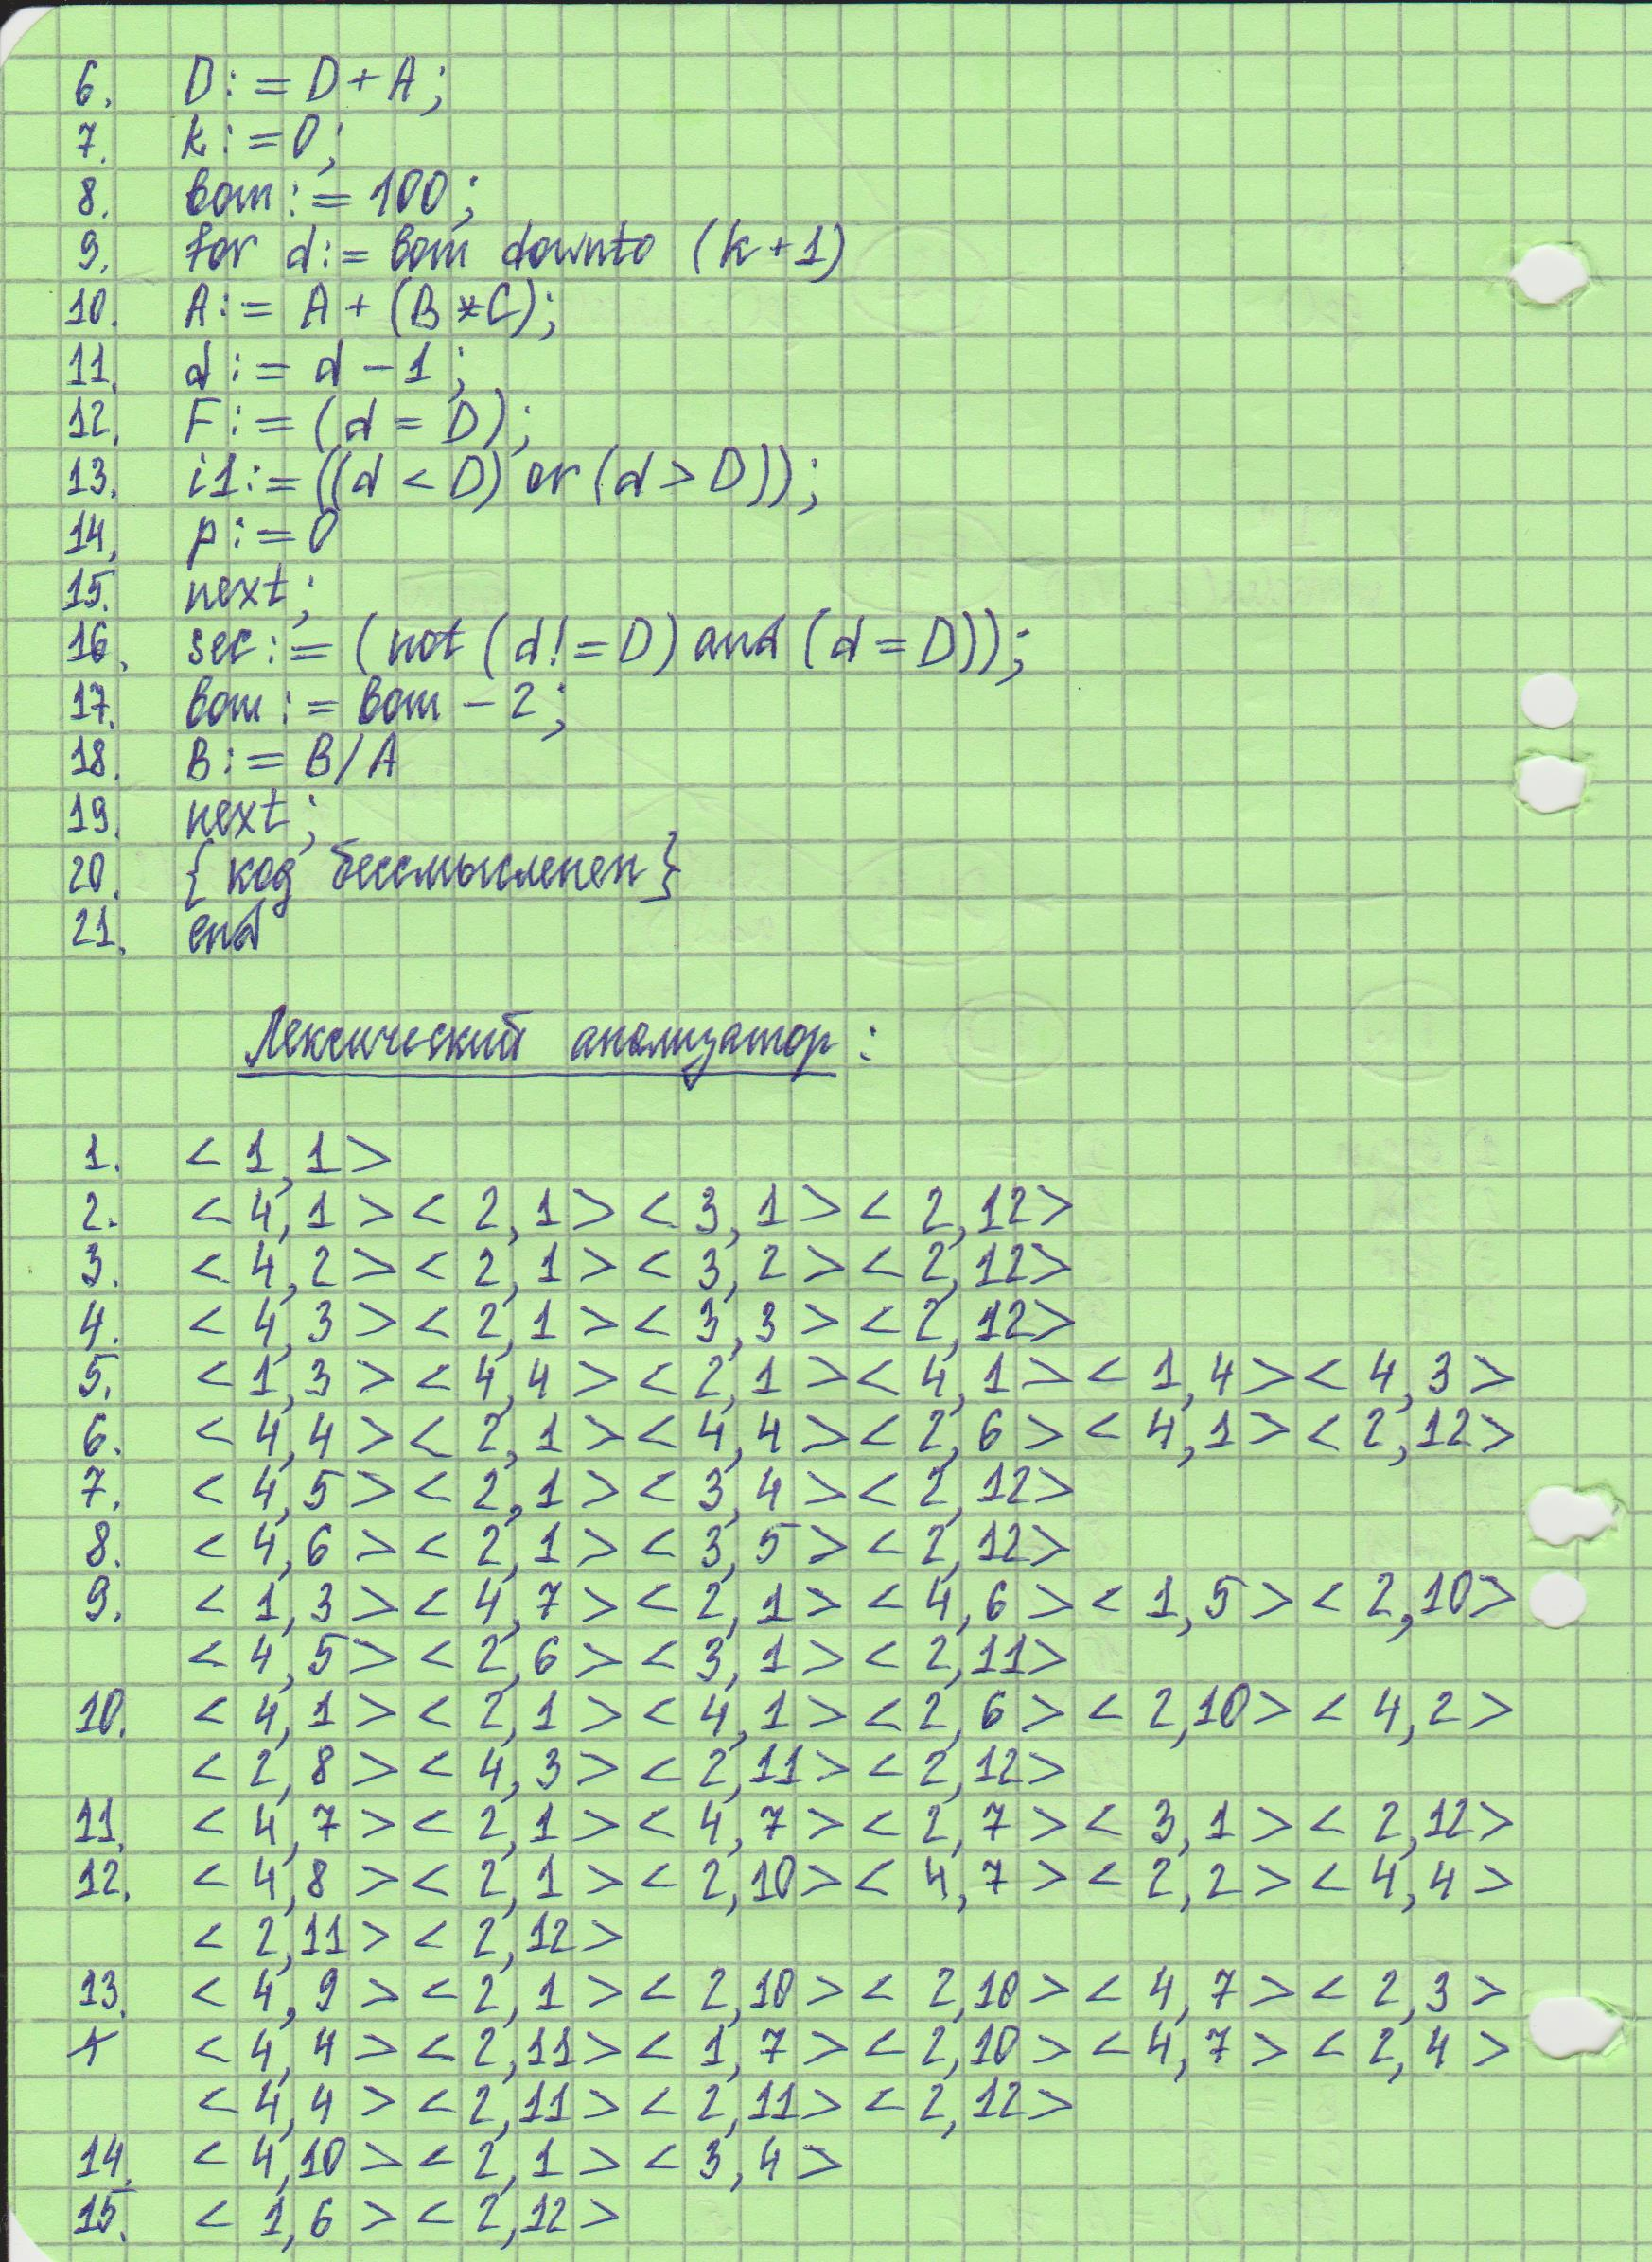 6. D:=D+A;
7. k:=0;
8. bom:=100;
9. for d:= bom downto (k+1)
10. A:= A + (B*C);
11. d:= d-1;
12. F:=(d=D);
13. i1:=((d<D) or (d>D));
14. p:=0
15. next;
16. sec:=(not (d!=D) and (d=D));
17. bom:= bom-2;
18. B:= B/A
19. next;
20. {код бессмысленен}
21. end
Лексический анализатор:
1. <1,1>
2. <4,1><2,1><3,1><2,12>
3. <4,2><2,1><3,2><2,12>
4. <4,3><2,1><3,3><2,12>
5. <1,3><4,4><2,1><4,1><1,4><4,3>
6. <4,4><2,1><4,4><2,6><4,1><2,12>
7. <4,5><2,1><3,4><2,12>
8. <4,6><2,1><3,5><2,12>
9. <1,3><4,7><2,1><4,6><1,5><2,10>
<4,5><2,6><3,1><2,11>
10. <4,1><2,1><4,1><2,6><2,10><4,2>
<2,8><4,3><2,11><2,12>
11. <4,7><2,1><4,7><2,7><3,1><2,12>
12. <4,8><2,1><2,10><4,7><2,2><4,4>
<2,11><2,12>
13. <4,9><2,1><2,10><2,10><4,7><2,3>
<4,4><2,11><1,7><2,10><4,7><2,4>
<4,4><2,11><2,11><2,12>
14. <4,10><2,1><3,4>
15. <1,6><2,12>